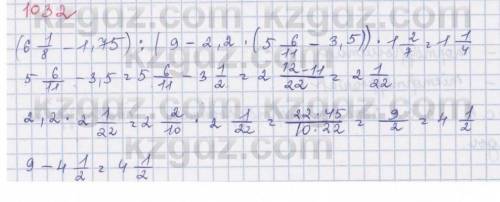 1032
(6 1/8 - 1,75) : (9 - 2,2 · (5 6/11 - 3,5)) · 1 2/7 = 1 1/4
5 6/11 - 3,5 = 5 6/11 - 3 1/2 = 2 12-11/22 = 2 1/22
2,2 · 2 1/22 = 2 2/10 · 2 1/22 = 22·45/10·22 = 9/2 = 4 1/2
9 - 4 1/2 = 4 1/2
kzgdz.com